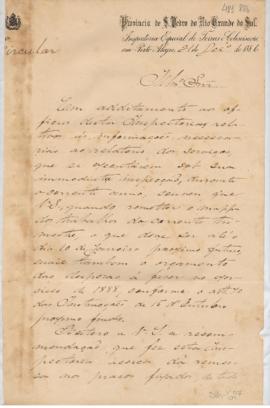 Provincia de S. Pedro do Rio Grande do Sul
Inspectoria Especial de Terras e Colonisação
em Porto Alegre, 21 de Dezº de 1886
Circular
Illmº Snr.
Com additamento ao of-
ficio desta Inspectoria, rela-
tivo ás informações necessa-
rias ao relatorio dos serviços,
que se executarem sob sua
immediata inspecção, durante
o corrente anno,
V.S. quando remetter o mappa
dos trabalhos do corrente tri-
mestre, o que deve ser até o
dia 10 de Janeiro proximo futuro,
envie tambem o orçamento
das despezas á fazer no exer-
cicio de 1888, conforme o
das Instrucções de 16 de Outubro
proximo findo.
Reitero a V.S. a recom-
mendação que fez esta Ins-
pectoria ácerca da remes-
sa nos prazos fixados de